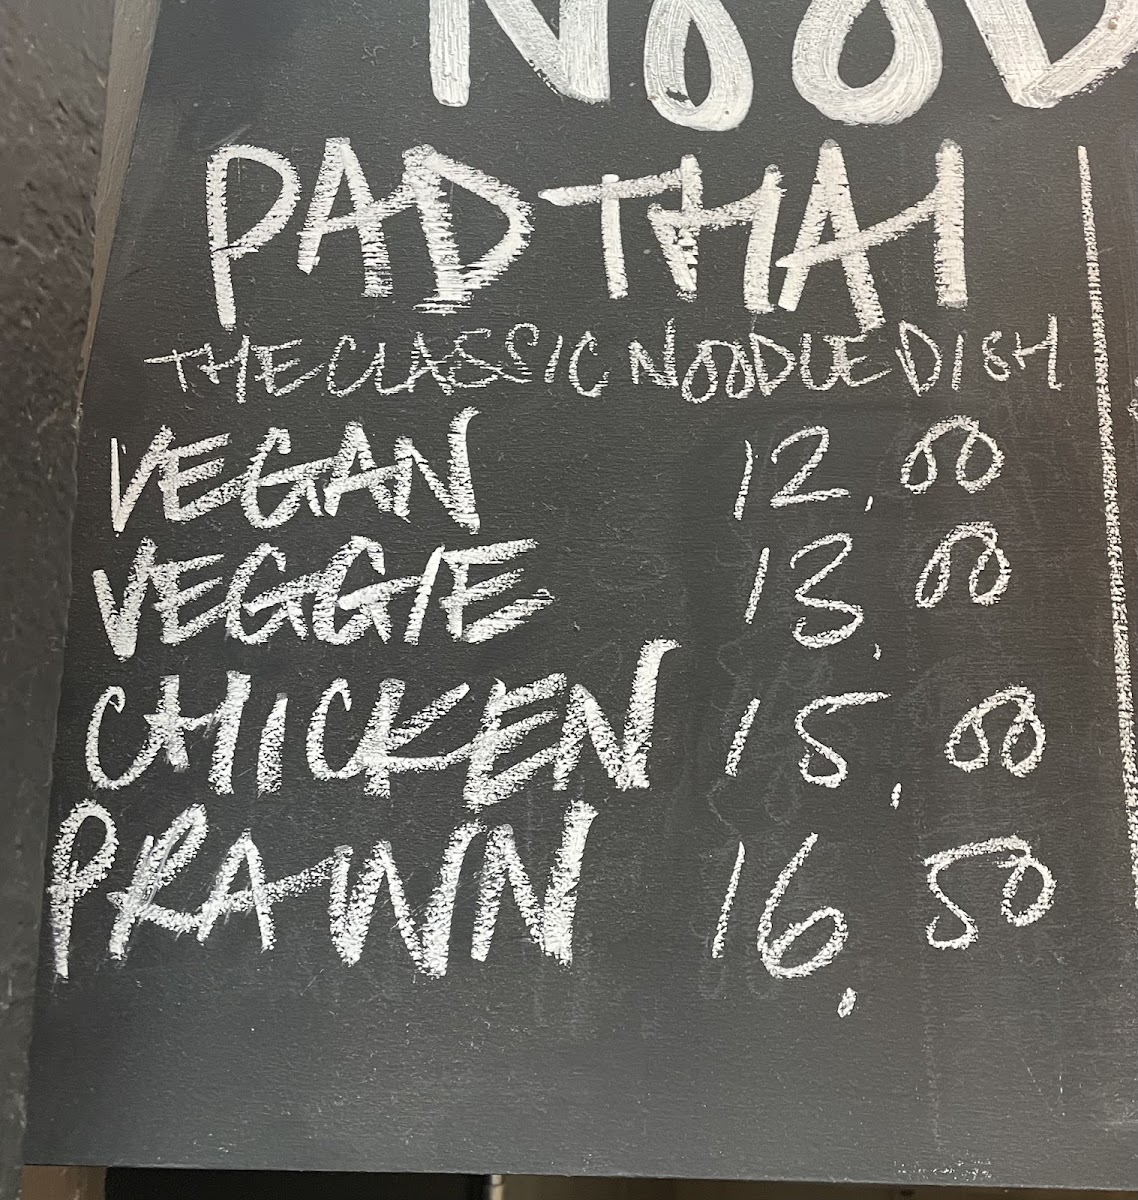 NOOD
PAD THAI
THE CLASSIC NOODLE DISH
VEGAN 12.00
VEGGIE 13.00
CHICKEN 15.00
PRAWN 16.50